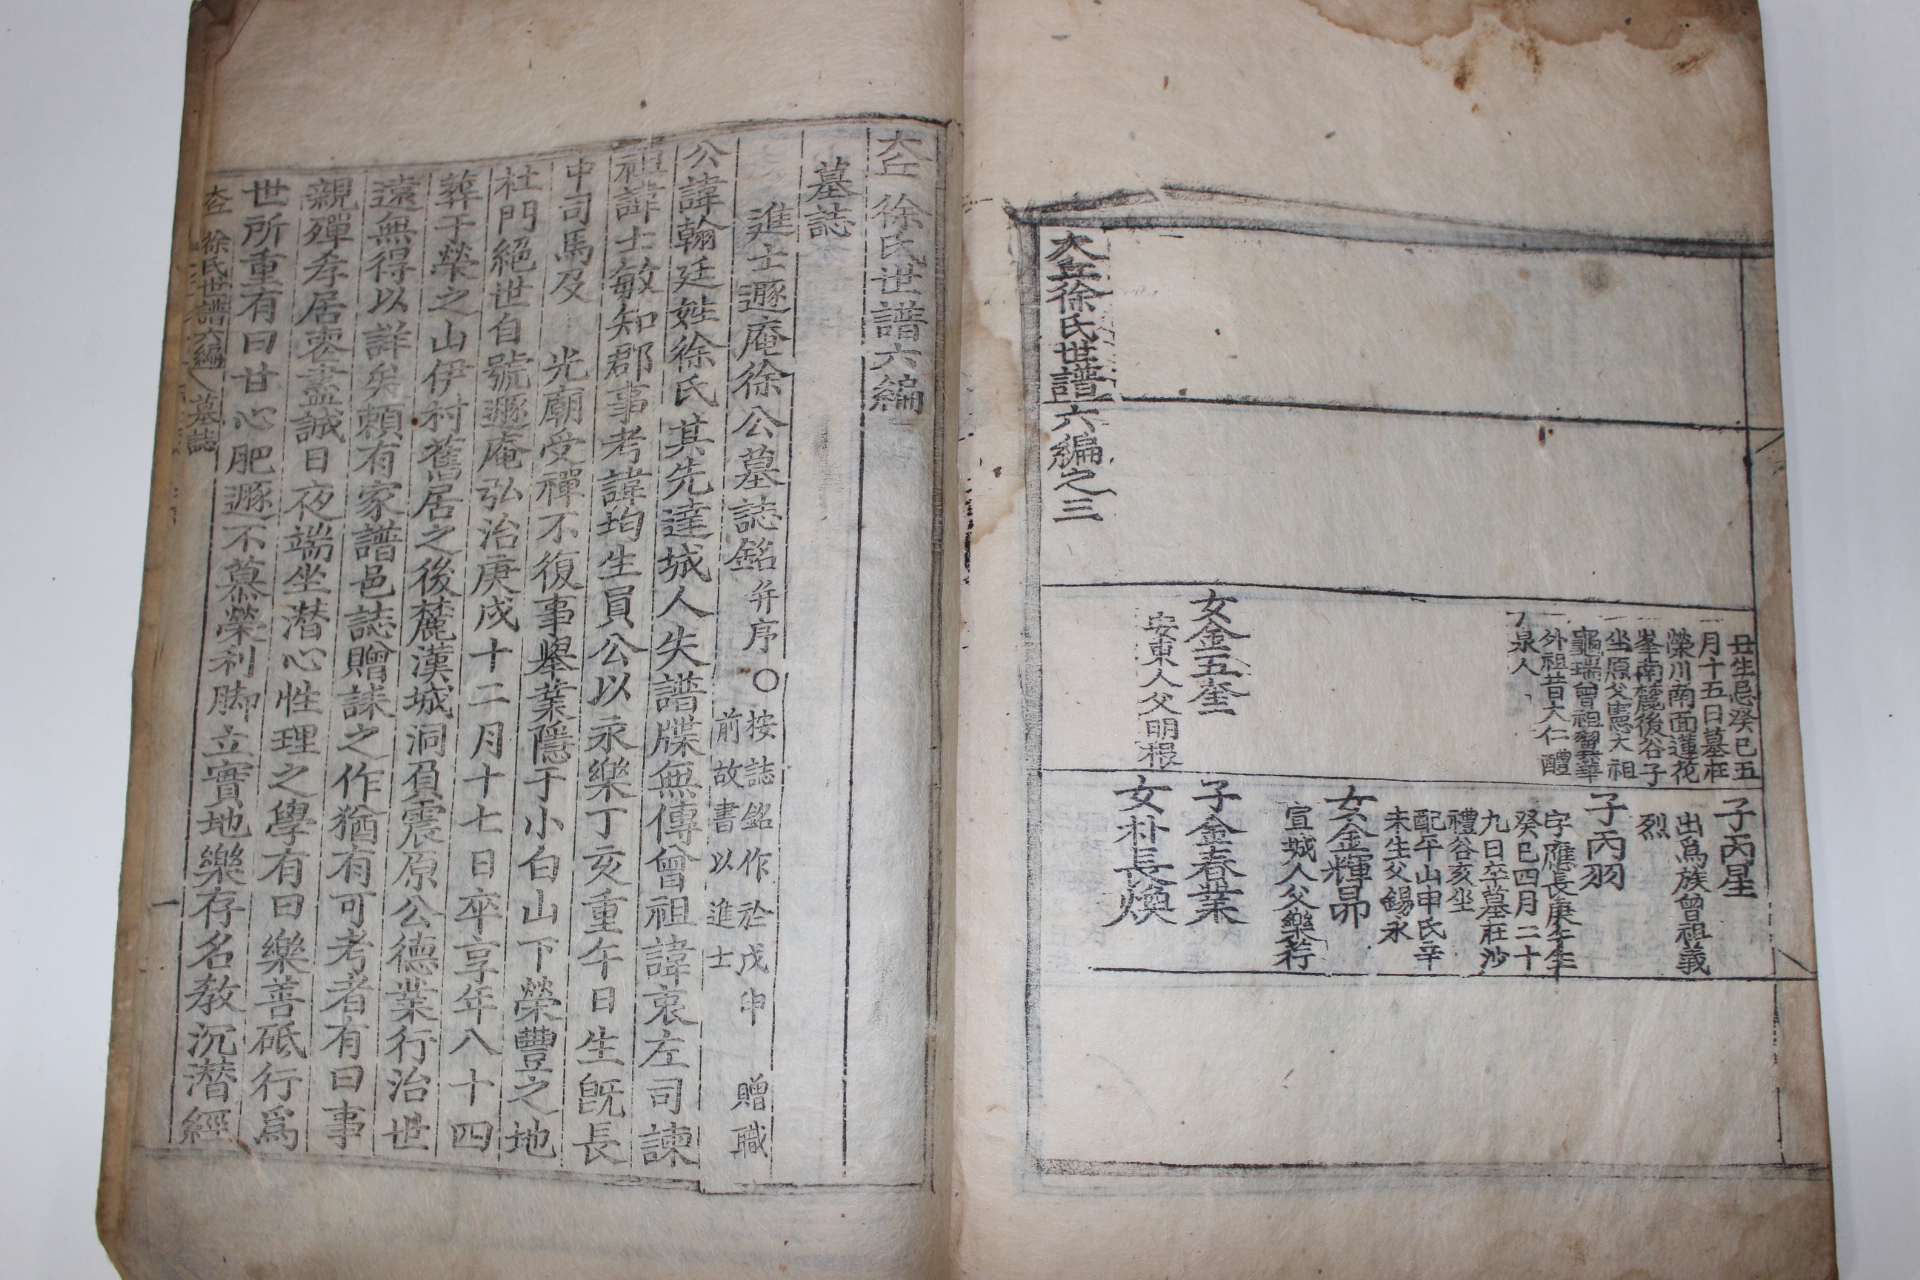 丑生忌癸巳五
月十五日墓在
榮川南面蓮花
峯南麓後谷子
坐原父憲大祖
龜瑞曾祖翼華
外祖昔大仁醴
泉人
女金五奎
安東人父明根
子丙星
出爲族曾祖義
烈
子丙羽
字應長庚午生
癸巳四月二十
九日卒墓在沙
禮谷亥坐
配平山申氏辛
未生父錫永
女金輝昴
宣城人父樂行
子金春業
女朴長煥
大丘徐氏世譜六編之三
大丘徐氏世譜六編
墓誌
進士遯庵徐公墓誌銘并序○按誌銘作於戊申 贈職
前故書以進士
公諱翰廷姓徐氏其先達城人失譜牒無傳曾祖諱衷左司諫
祖諱士敏知郡事考諱均生員公以永樂丁亥重午日生旣長
中司馬及 光廟受禪不復事擧業隱于小白山下榮豐之地
杜門絕世自號遯庵弘治庚戌十二月十七日卒享年八十四
葬于榮之山伊村舊居之後麓漢城洞負震原公德業行治世
遠無得以詳矣賴有家譜邑誌贈誄之作猶有可考者有曰事
親殫孝居喪盡誠日夜端坐潜心性理之學有曰樂善砥行爲
世所重有曰甘心肥遯不慕榮利脚立實地樂存名敎沉潜經
大丘徐氏世譜六編 墓誌 一